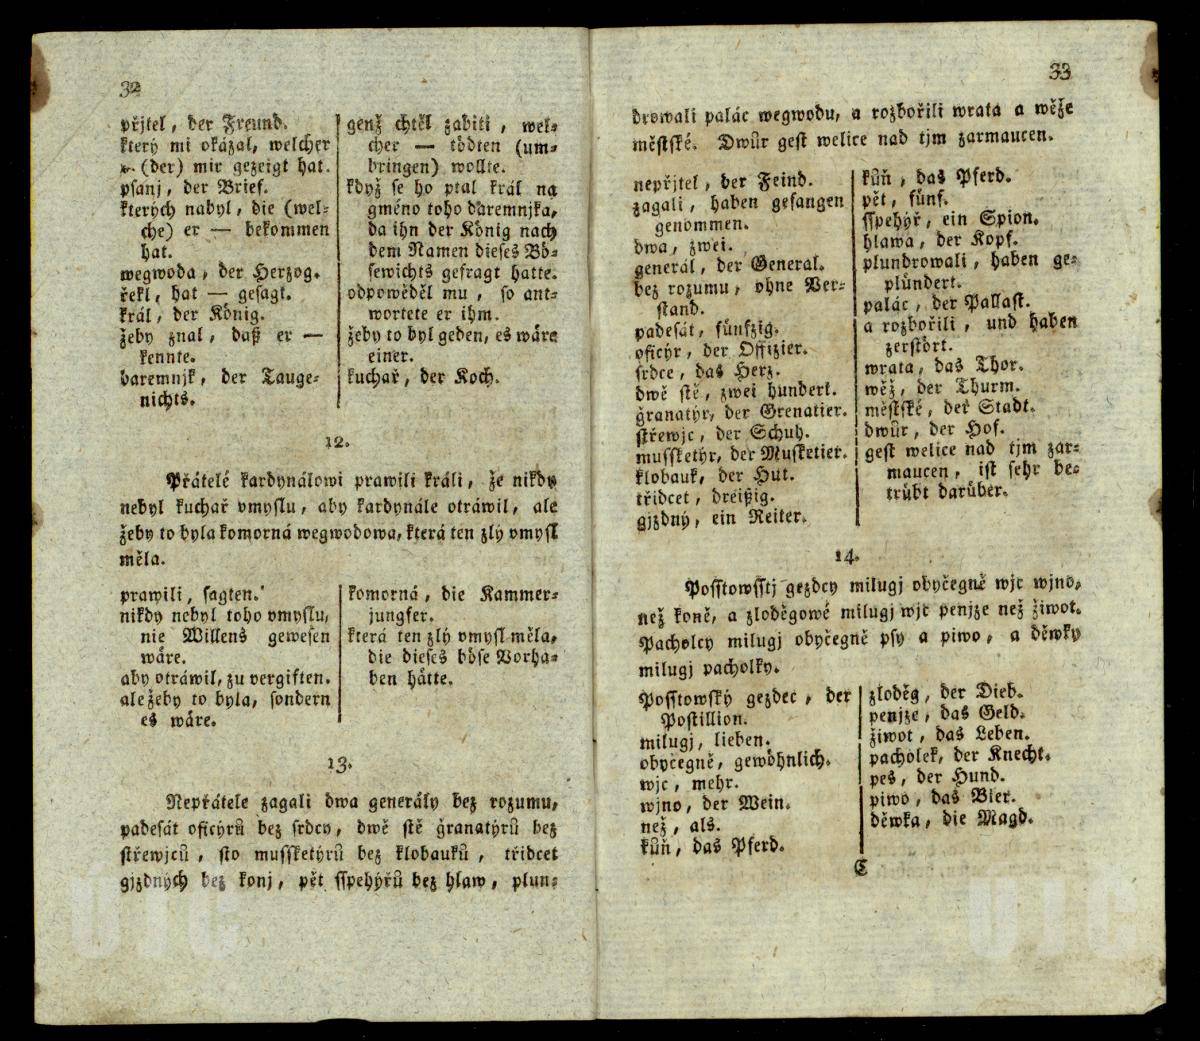 32
přjtel, der Freund.
který mi okázal, welcher
(der) mir gezeigt hat.
psanj, der Brief.
kterých nabyl, die (wel-
che) er — bekommen
hat.
wegwoda, der Herzog.
řekl, hat — gesagt.
král, der König.
žeby znal, daß er —
kennte.
daremnjk, der Tauge-
nichts.
genž chtěl zabiti, wel-
cher — tödten (um-
bringen) wollte.
když se ho ptal král na
gméno toho daremnjka,
da ihn der König nach
dem Namen dieses Bö-
sewichts gefragt hatte.
odpowěděl mu, so ant-
wortete er ihm.
žeby to byl geden, es wäre
einer.
kuchař, der Koch.
12.
Přátelé kardynálowi prawili králi, že nikdy
nebyl kuchař vmyslu, aby kardynále otráwil, ale
žeby to byla komorná wegwodowa, která ten zlý vmysl
měla.
prawili, sagten.
nikdy nebyl toho vmyslu,
nie Willens gewesen
wäre.
aby otráwil, zu vergiften.
ale žeby to byla, sondern
es wäre.
komorná, die Kammer-
jungfer.
která ten zlý vmysl měla,
die dieses böse Vorha-
ben hätte.
13.
Nepřátele zagali dwa generály bez rozumu,
padesát oficýrů bez srdcy, dwě stě granatýrů bez
střewjců, sto mussketýrů bez klobauků, třidcet
gjzdných bez konj, pět sspehýřů bez hlaw, plun-
33
drowali palác wegwodu, a rozbořili wrata a wěže
městské. Dwůr gest welice nad tjm zarmaucen.
nepřjtel, der Feind.
zagali, haben gefangen
genommen.
dwa, zwei.
generál, der General.
bez rozumu, ohne Ver-
stand.
padesát, fünfzig.
oficýr, der Offizier.
srdce, das Herz.
dwě stě, zwei hundert.
granatýr, der Grenatier.
střewjc, der Schuh.
mussketýr, der Musketier.
klobauk, der Hut.
třidcet, dreißig.
gjzdný, ein Reiter.
kůň, das Pferd.
pět, fünf.
sspehýř, ein Spion.
hlawa, der Kopf.
plundrowali, haben ge-
plündert.
palác, der Pallast.
a rozbořili, und haben
zerstört.
wrata, das Thor.
wěž, der Thurm.
městské, der Stadt.
dwůr, der Hof.
gest welice nad tjm zar-
maucen, ist sehr be-
trübt darüber.
14.
Posstowsstj gezdcy milugj obyčegně wjc wjno,
než koně, a zloděgowé milugj wjc penjze než žiwot.
Pacholcy milugj obyčegně psy a piwo, a děwky
milugj pacholky.
Posstowský gezdec, der
Postillion.
milugj, lieben.
obyčegně, gewöhnlich.
wjc, mehr.
wjno, der Wein.
než, als.
kůň, das Pferd.
zloděg, der Dieb.
penjze, das Geld.
žiwot, das Leben.
pacholek, der Knecht.
pes, der Hund.
piwo, das Bier.
děwka, die Magd.
C